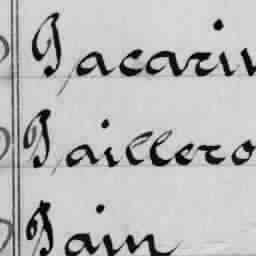 Pacarin
Paillero
Pain